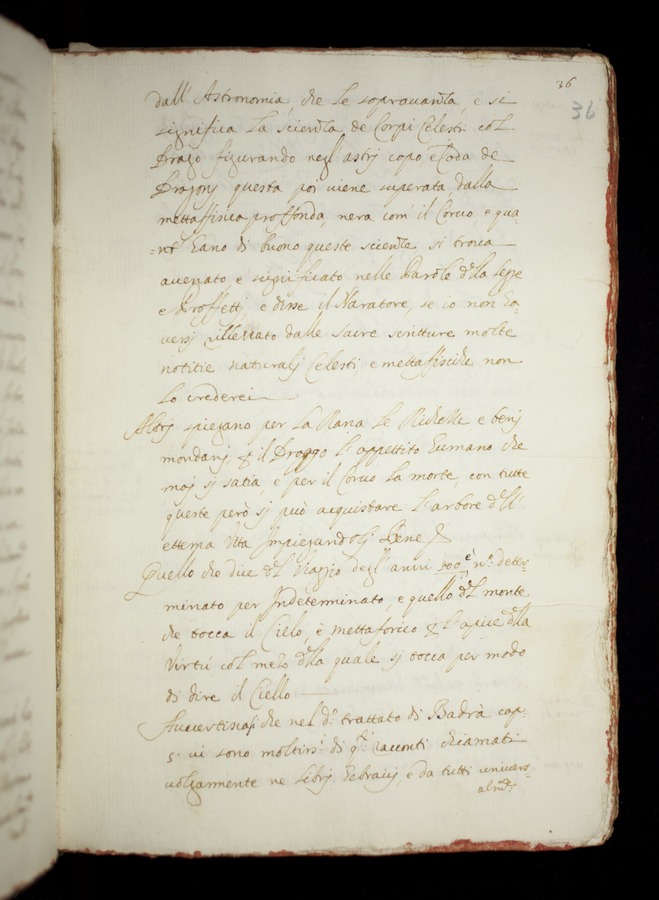 36
36
dall' Astronomia, che le sopravanza, e si
significa la scienza de Corpi Celesti col
Drago figurando negl'astri capo e Coda de
Dragonj questa poi viene superata dalla
mettaffisica proffonda, nera com' il Corvo e qua
=nto hano di buono queste scienze si trova
avenato e significato nelle Parole della legge
e Proffetj, e disse il Naratore, se io non ha-
vessj dalle sacre scritture molte
notitie naturalj Celesti, e mettaffisiche non
lo crederei
Altrj spiegano per la Rana le Richesse e benj
mondanj, & il Draggo l'appettito humano che
maj sj satia, e per il Corvo la morte, con tutte
queste però sj può acquistare l'arbore dell'
etterna Vita Impiegandolj Bene
Quello che dice del Viaggio degl'anni 500 è nº deter-
minato per Indeterminato, e quello del monte
che tocca il Cielo, è mettaforico & l'apice della
Virtú col mezo della quale sj tocca per modo
di dire il Ciello
che nel dº trattato di Badrà cap.
5. vi sono moltiss.i di q.ti racconti chiamati
volgarmente ne librj hebraicj, e da tutti univers=
alm.te